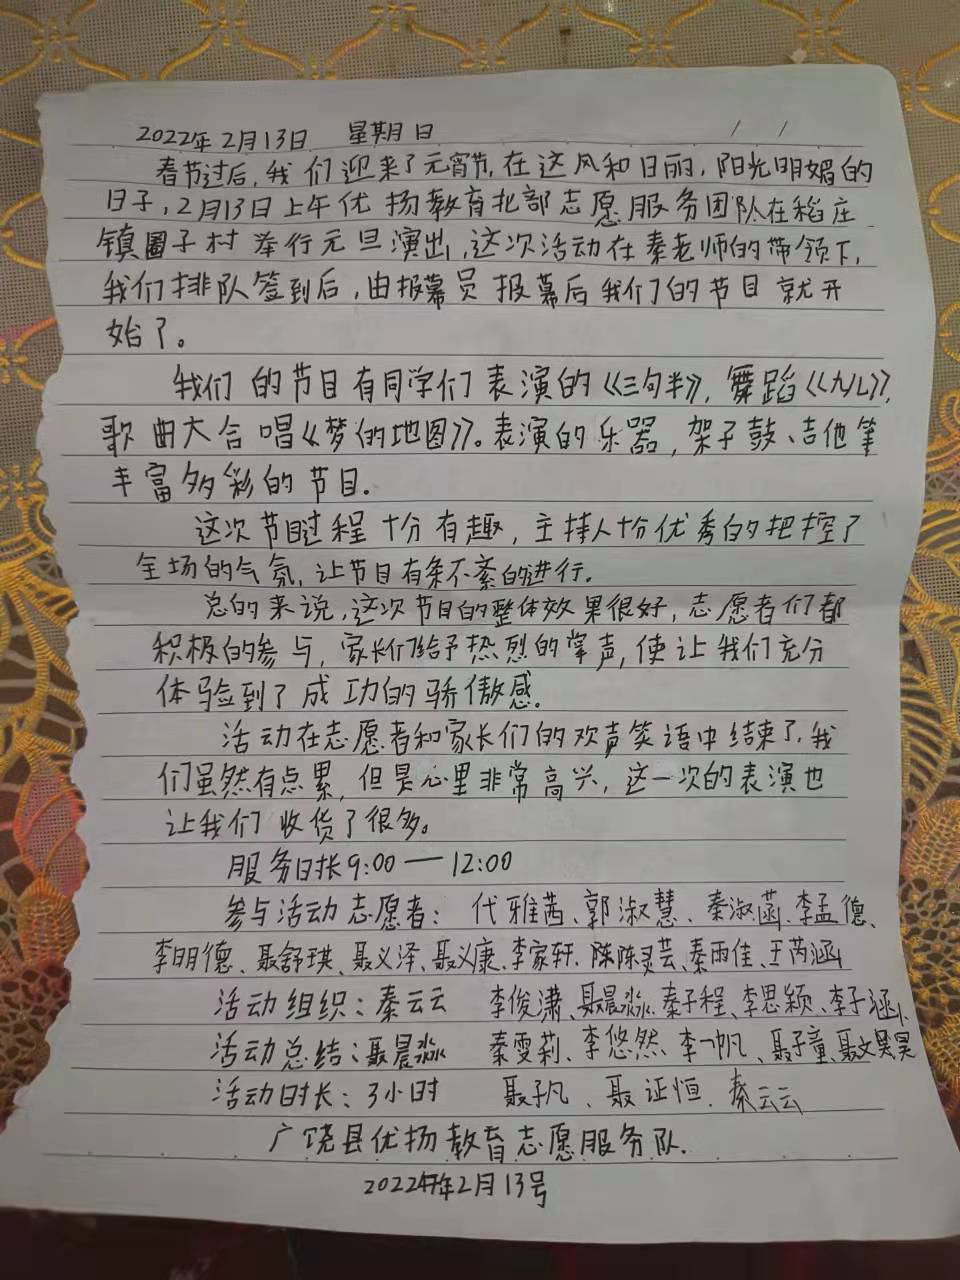 2022年2月13日 星期日 / /
春节过后,我们迎来了元宵节,在这风和日丽,阳光明媚的
日子,2月13日上午优扬教育北部志愿服务团队在稻庄
镇圈子村举行元旦演出,这次活动在秦老师的带领下,
我们排队签到后,由报幕员报幕后我们的节目就开
始了。
我们的节目有同学们表演的《三句半》,舞蹈《九儿》,
歌曲大合唱《梦的地图》。表演的乐器,架子鼓、吉他等
丰富多彩的节目.
这次节目过程十分有趣,主持人十分优秀的把控了
全场的气氛,让节目有条不紊的进行.
总的来说,这次节目的整体效果很好,志愿者们都
积极的参与,家长们给予热烈的掌声,使让我们充分
体验到了成功的骄傲感.
活动在志愿者和家长们的欢声笑语中结束了.我
们虽然有点累,但是心里非常高兴,这一次的表演也
让我们收货了很多。
服务日长9:00—12:00
参与活动志愿者:代雅茜、郭淑慧、秦淑菡、李孟德、
李明德、聂舒琪、聂义泽、聂义康、李家轩、陈陈灵芸、秦雨佳、王芮涵
活动组织:秦云云 李俊潇、聂晨淼、秦子程、李思颖、李子涵、
活动总结:聂晨淼 秦雯莉、李悠然、李一帆、聂子童、聂文昊
活动时长:3小时 聂子凡、聂证恒、秦云云
广饶县优扬教育志愿服务队.
2022年2月13号